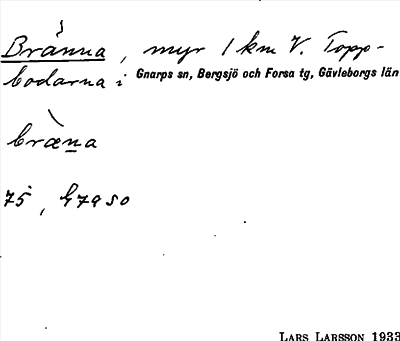 Bränna, myr 1 km V. Topp-
bodarna i Gnarps sn, Bergsjö och Forsa tg, Gävleborgs län
bræna
75, h7a so
LARS LARSSON 1933